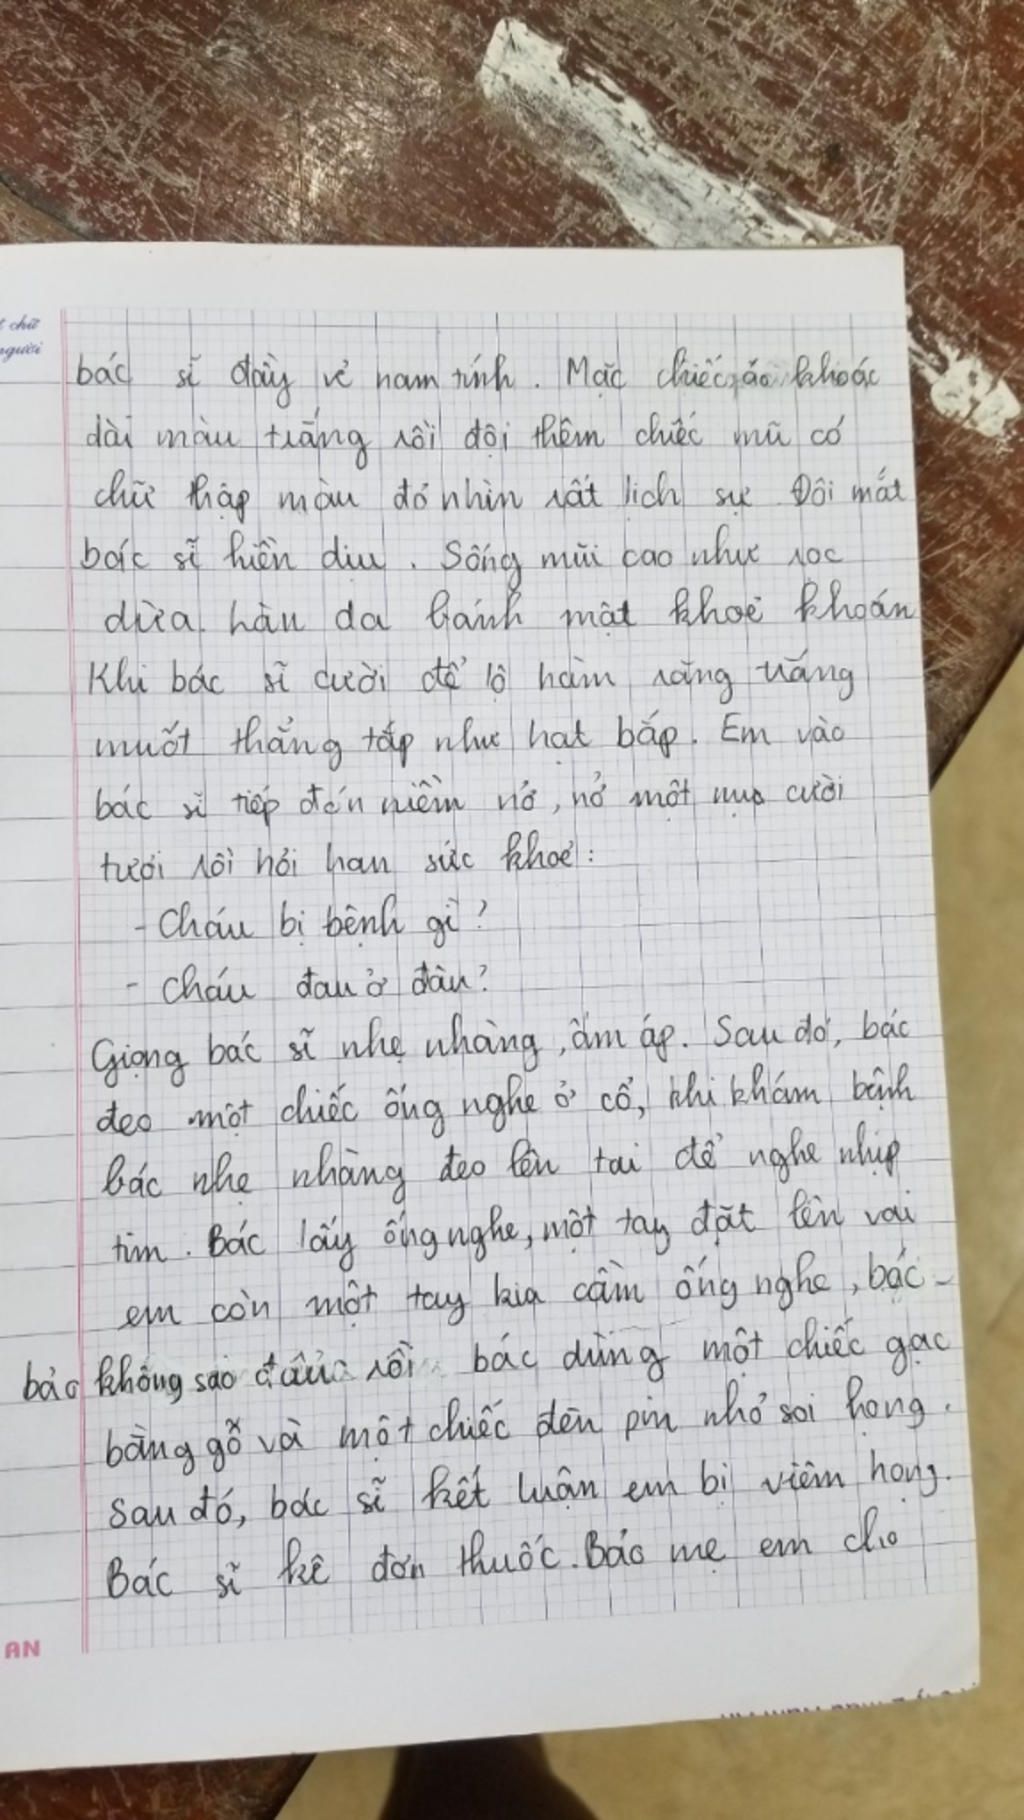 t chữ
người
bác sĩ đầy vẻ nam tính. Mặc chiếc áo khoác
dài màu trắng rồi đội thêm chiếc mũ có
chữ thập màu đỏ nhìn rất lịch sự. Đôi mắt
bác sĩ hiền dịu. Sống mũi cao như rọc
dừa hàu da bánh mật khoẻ khoắn
Khi bác sĩ cười để lộ hàm răng trắng
muốt thẳng tắp như hạt bắp. Em vào
bác sĩ tiếp đón niềm nở, nở một nụ cười
tươi rồi hỏi han sức khoẻ:
- Cháu bị bệnh gì?
- Cháu đau ở đâu?
Giọng bác sĩ nhẹ nhàng, ấm áp. Sau đó, bác
đeo một chiếc ống nghe ở cổ, khi khám bệnh
bác nhẹ nhàng đeo lên tai để nghe nhịp
tim. Bác lấy ống nghe, một tay đặt lên vai
em còn một tay kia cầm ống nghe, bác
bảo không sao đâu rồi bác dùng một chiếc gạc
bằng gỗ và một chiếc đèn pin nhỏ soi họng.
sau đó, bác sĩ kết luận em bị viêm họng.
Bác sĩ kê đơn thuốc. Bảo mẹ em cho
AN